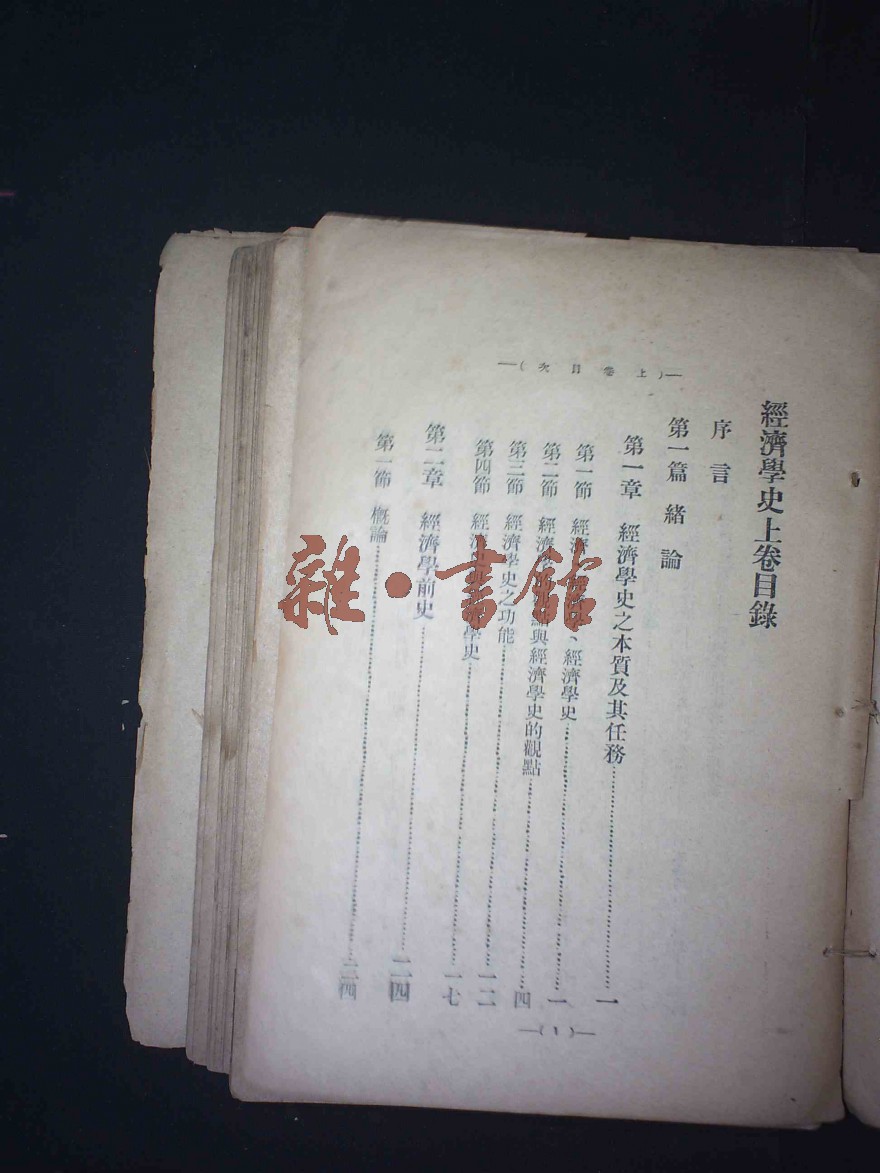 (上卷目次)
經濟學史上卷目錄
序言
第一篇 緒論
第一章 經濟學史之本質及其任務……一
第一節 經濟、經濟學史……一
第二節 經濟學與經濟學史的觀點……四
第三節 經濟學史之功能……一二
第四節 經濟學史……一七
第二章 經濟學前史……二四
第一節 概論……二四
(1)
雜·書館